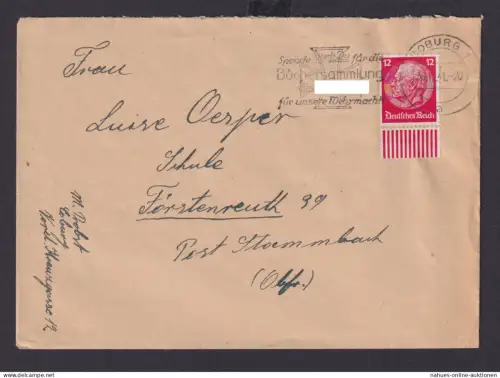 Spende für die
Büchersammlung
für unsere Wehrmacht
COBURG
12 12
Deutsches Reich
Frau
Luise Oerper
Schule
Förstenreuth 39
Post Stammbach
(Obfr.)
M. Probst
Coburg
12
www.delcampe.net
nahues-online-auktionen